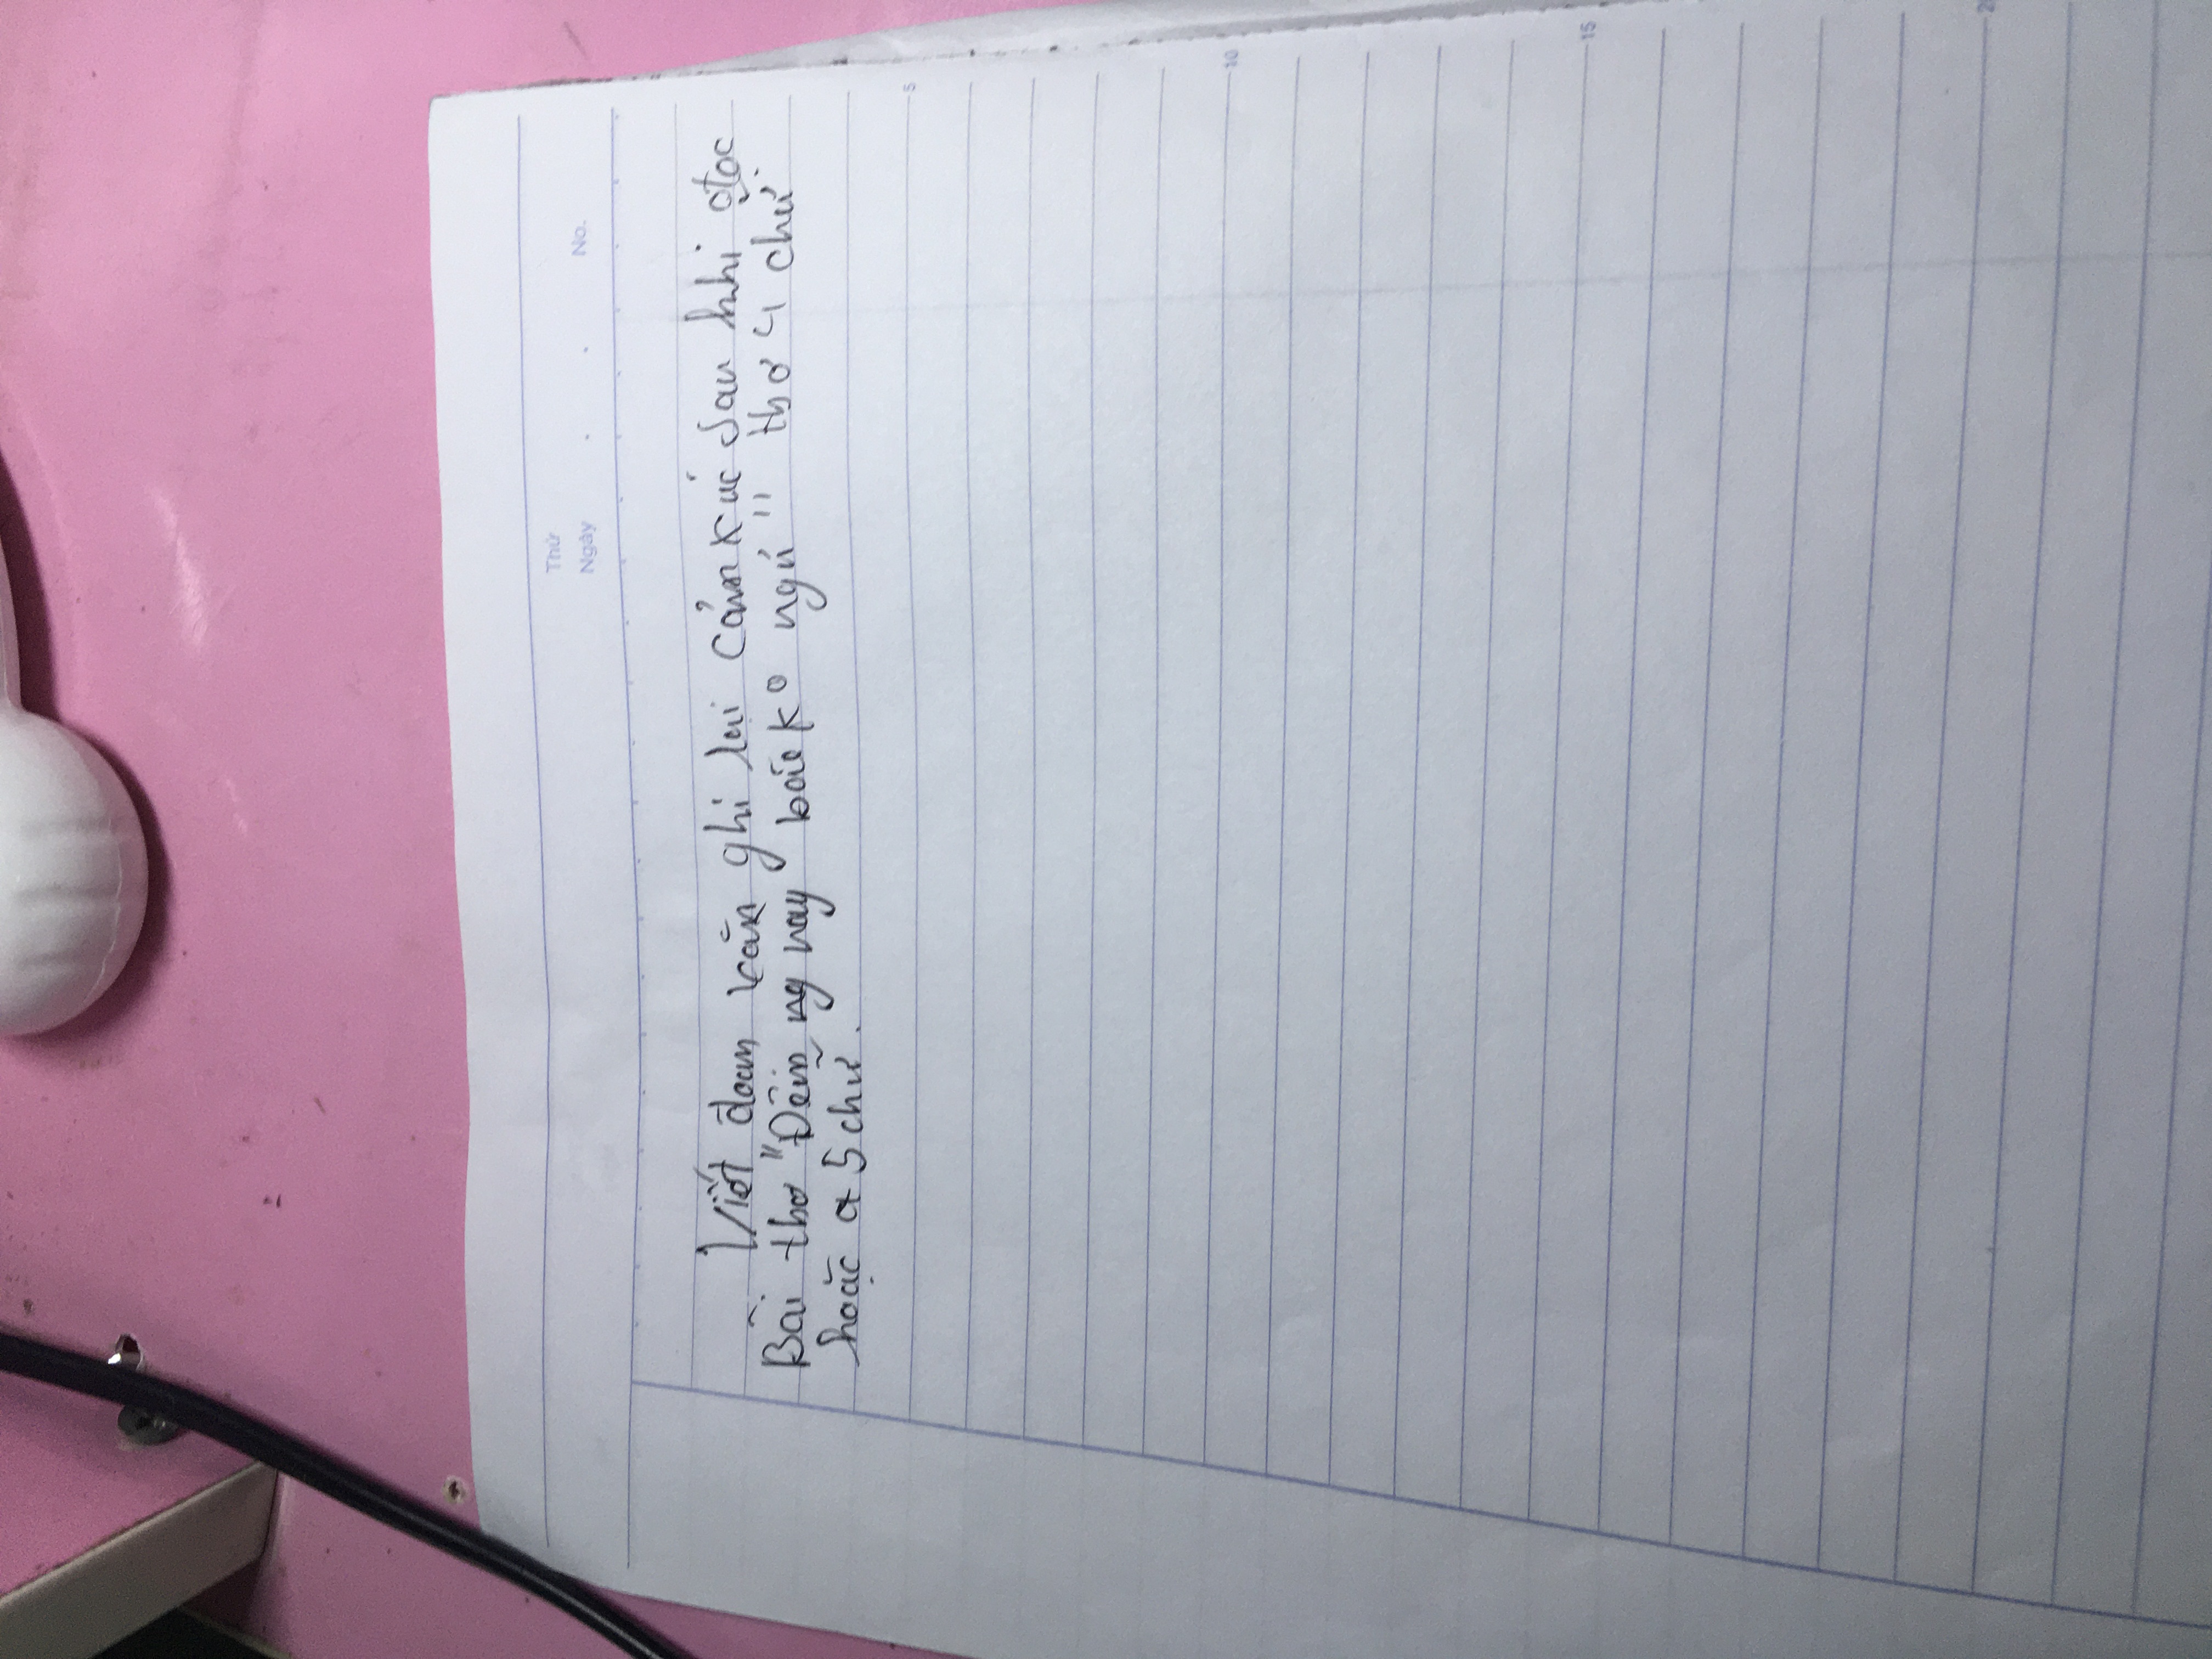 Thứ
Ngày . . No.
Viết đoạn văn ghi lại cảm xúc sau khi đọc
Bài thơ "Đêm nay bác ko ngủ" thơ 4 chữ
hoặc 5 chữ.
5
10
15